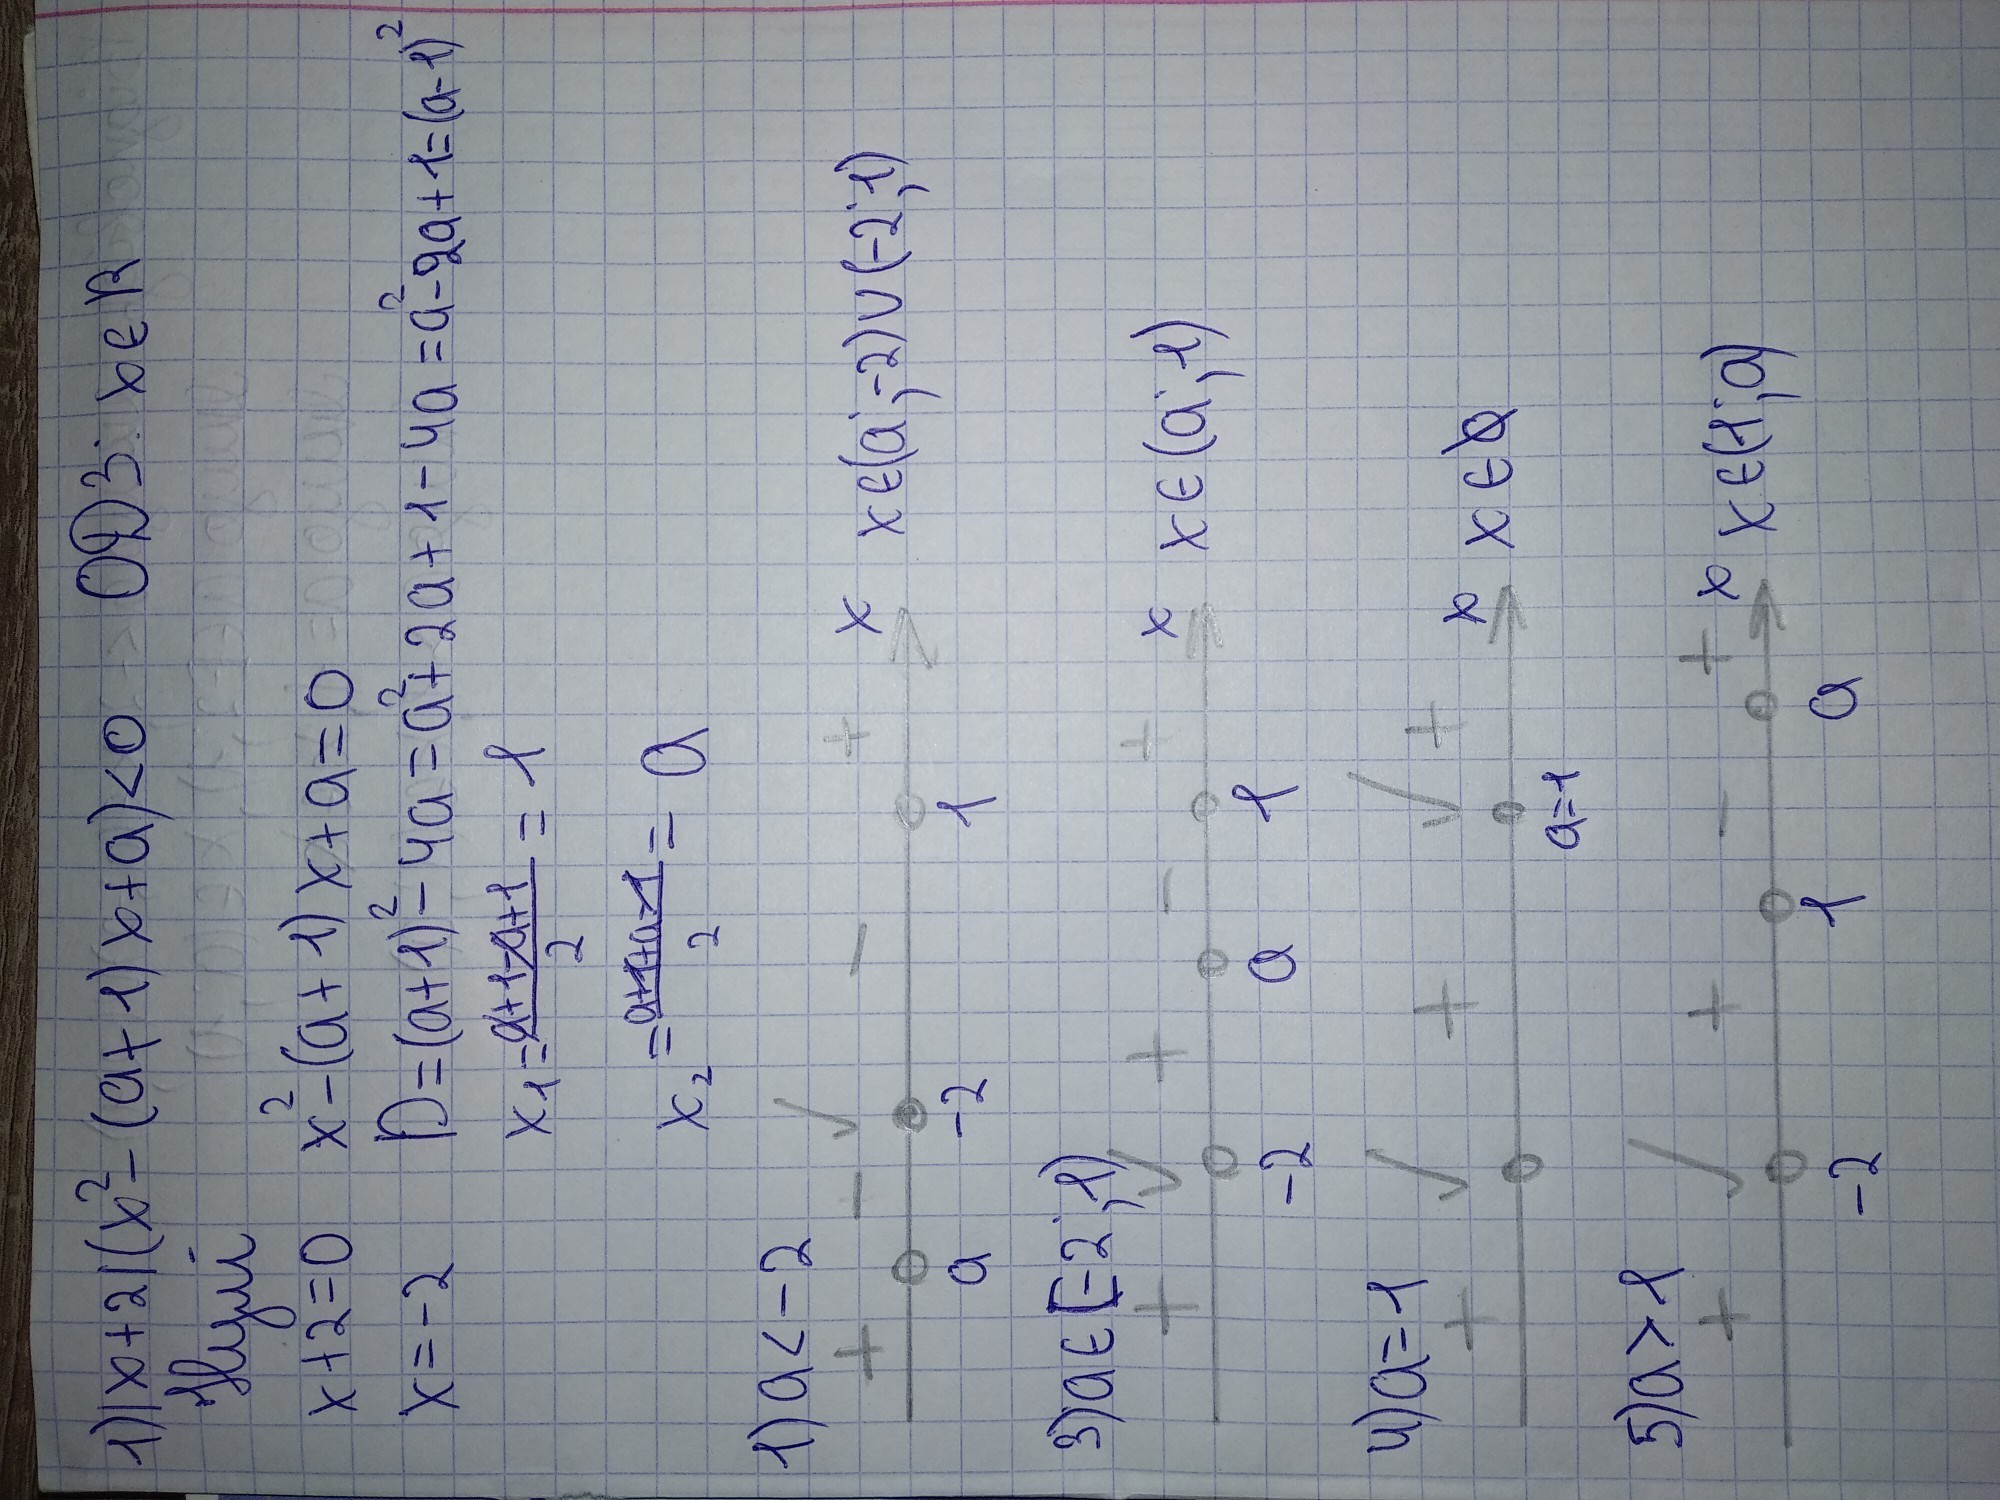 1)|x+2|(x²-(a+1)x+a)<0 ОДЗ: x∈R
Нулі
x+2=0 x²-(a+1)x+a=0
x=-2 D=(a+1)²-4a=a²+2a+1-4a=a²-2a+1=(a-1)²
x₁=a+1-a+1/2=1
x₂=a+1+a-1/2=a
1)a<-2
+ - √ - + x x∈(a;-2)∪(-2;1)
a -2 1
3)a∈[-2;1)
+ √ + - + x x∈(a;1)
-2 a 1
4)a=1
+ √ + √ + x x∈Ø
a=1
5)a>1
+ √ + - + x x∈(1;a)
-2 1 a